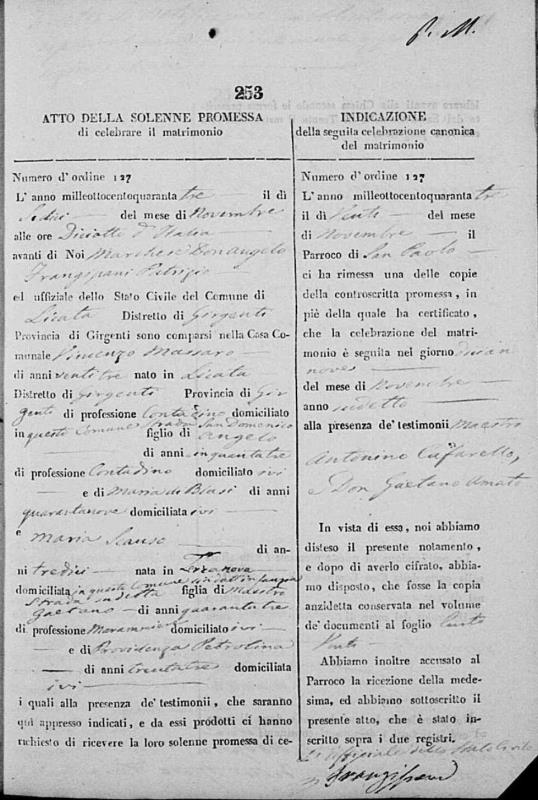 P. M.
253
ATTO DELLA SOLENNE PROMESSA
di celebrare il matrimonio
Numero d' ordine 127
L' anno milleottocentoquaranta tre il dì
Sedici del mese di Novembre
alle ore Diciotto d'Italia
avanti di Noi Marchese Don Angelo
Frangipani Patrizio
ed uffiziale dello Stato Civile del Comune di
Licata Distretto di Girgenti
Provincia di Girgenti sono comparsi nella Casa Co-
munale Vincenzo Massaro
di anni ventitre nato in Licata
Distretto di Girgenti Provincia di Gir
genti di professione Contadino domiciliato
in questo Comune Strada San Domenico
figlio di Angelo
di anni cinquantatre
di professione Contadino domiciliato ivi
e di Maria di Blasi di anni
quarantanove domiciliata ivi
e Maria Scauso
di an-
ni tredici nata in
domiciliata in questo Comune
Strada figlia di Maestro
Gaetano di anni quarantatre
di professione domiciliato ivi
e di Providenza Petrolina
di anni trentatre domiciliata
ivi
i quali alla presenza de' testimonii, che saranno
qui appresso indicati, e da essi prodotti ci hanno
richiesto di ricevere la loro solenne promessa di ce-
INDICAZIONE
della seguita celebrazione canonica
del matrimonio
Numero d' ordine 127
L' anno milleottocentoquaranta tre
il dì Venti del mese
di Novembre il
Parroco di San Paolo
ci ha rimessa una delle copie
della controscritta promessa, in
piè della quale ha certificato,
che la celebrazione del matri-
monio è seguita nel giorno dician
nove
del mese di Novembre
anno sudetto
alla presenza de' testimonii Maestro
Antonino Cafarello,
e Don Gaetano Amato
In vista di essa, noi abbiamo
disteso il presente notamento,
e dopo di averlo cifrato, abbia-
mo disposto, che fosse la copia
anzidetta conservata nel volume
de' documenti al foglio Cento
Venti
Abbiamo inoltre accusato al
Parroco la ricezione della mede-
sima, ed abbiamo sottoscritto il
presente atto, che è stato in-
scritto sopra i due registri.
L'Officiale dello Stato Civile
Frangipani